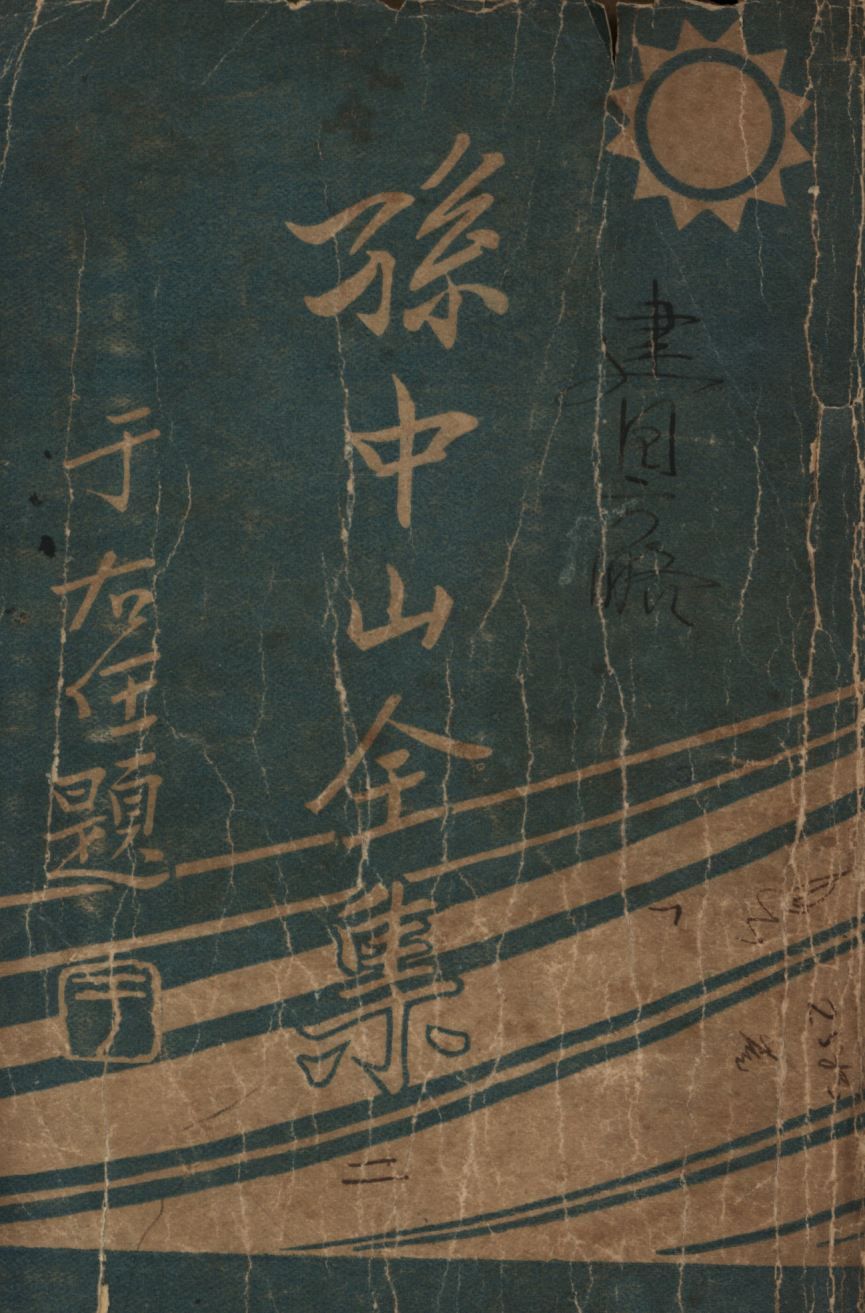 建国方略
孫中山全集
二
于右任題
于